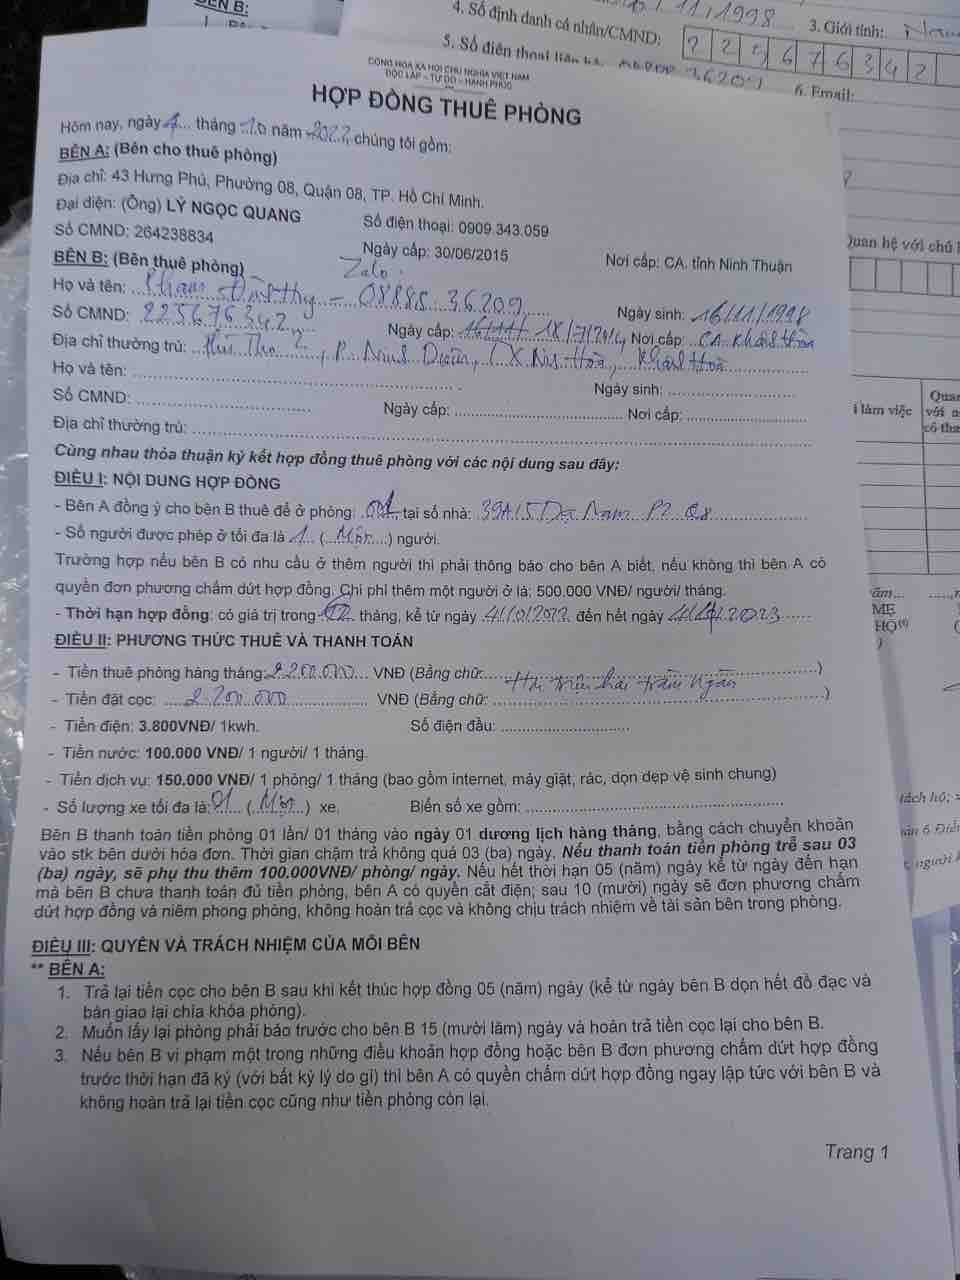 BÊN B:
11/1998
3. Giới tính: Nam
4. Số định danh cá nhân/CMND: 225676342
5. Số điện thoại liên hệ: 36209
6. Email:
CỘNG HÒA XÃ HỘI CHỦ NGHĨA VIỆT NAM
ĐỘC LẬP - TỰ DO - HẠNH PHÚC
HỢP ĐỒNG THUÊ PHÒNG
Hôm nay, ngày 4 tháng 10 năm 2022, chúng tôi gồm:
BÊN A: (Bên cho thuê phòng)
Địa chỉ: 43 Hưng Phú, Phường 08, Quận 08, TP. Hồ Chí Minh.
Đại diện: (Ông) LÝ NGỌC QUANG Số điện thoại: 0909.343.059
Số CMND: 264238834 Ngày cấp: 30/06/2015 Nơi cấp: CA. tỉnh Ninh Thuận
BÊN B: (Bên thuê phòng) Zalo:
Họ và tên: Phạm - 08885 36209 Ngày sinh: 16/11/1998
Số CMND: 225676342 Ngày cấp: 18/7/2014 Nơi cấp: CA Khánh Hòa
Địa chỉ thường trú: Phú Thọ 2, P. Ninh Diêm, TX Ninh Hoà, Khánh Hoà
Họ và tên: Ngày sinh:
Số CMND: Ngày cấp: Nơi cấp:
Địa chỉ thường trú:
Cùng nhau thỏa thuận ký kết hợp đồng thuê phòng với các nội dung sau đây:
ĐIỀU I: NỘI DUNG HỢP ĐỒNG
- Bên A đồng ý cho bên B thuê để ở phòng: tại số nhà: 39A/5 Dạ Nam P2 Q8
- Số người được phép ở tối đa là 1 (Một) người.
Trường hợp nếu bên B có nhu cầu ở thêm người thì phải thông báo cho bên A biết, nếu không thì bên A có
quyền đơn phương chấm dứt hợp đồng. Chi phí thêm một người ở là: 500.000 VNĐ/ người/ tháng.
- Thời hạn hợp đồng: có giá trị trong tháng, kể từ ngày 4/10/2022 đến hết ngày 2023
ĐIỀU II: PHƯƠNG THỨC THUÊ VÀ THANH TOÁN
- Tiền thuê phòng hàng tháng: 2.200.000 VNĐ (Bằng chữ: Hai triệu hai trăm ngàn)
- Tiền đặt cọc: 2.200.000 VNĐ (Bằng chữ: )
- Tiền điện: 3.800VNĐ/ 1kwh. Số điện đầu:
- Tiền nước: 100.000 VNĐ/ 1 người/ 1 tháng.
- Tiền dịch vụ: 150.000 VNĐ/ 1 phòng/ 1 tháng (bao gồm internet, máy giặt, rác, dọn dẹp vệ sinh chung)
- Số lượng xe tối đa là: 01 (Một) xe. Biển số xe gồm:
Bên B thanh toán tiền phòng 01 lần/ 01 tháng vào ngày 01 dương lịch hàng tháng, bằng cách chuyển khoản
vào stk bên dưới hóa đơn. Thời gian chậm trả không quá 03 (ba) ngày. Nếu thanh toán tiền phòng trễ sau 03
(ba) ngày, sẽ phụ thu thêm 100.000VNĐ/ phòng/ ngày. Nếu hết thời hạn 05 (năm) ngày kể từ ngày đến hạn
mà bên B chưa thanh toán đủ tiền phòng, bên A có quyền cắt điện; sau 10 (mười) ngày sẽ đơn phương chấm
dứt hợp đồng và niêm phong phòng, không hoàn trả cọc và không chịu trách nhiệm về tài sản bên trong phòng.
ĐIỀU III: QUYỀN VÀ TRÁCH NHIỆM CỦA MỖI BÊN
** BÊN A:
1. Trả lại tiền cọc cho bên B sau khi kết thúc hợp đồng 05 (năm) ngày (kể từ ngày bên B dọn hết đồ đạc và
bàn giao lại chìa khóa phòng).
2. Muốn lấy lại phòng phải báo trước cho bên B 15 (mười lăm) ngày và hoàn trả tiền cọc lại cho bên B.
3. Nếu bên B vi phạm một trong những điều khoản hợp đồng hoặc bên B đơn phương chấm dứt hợp đồng
trước thời hạn đã ký (với bất kỳ lý do gì) thì bên A có quyền chấm dứt hợp đồng ngay lập tức với bên B và
không hoàn trả lại tiền cọc cũng như tiền phòng còn lại.
Trang 1
Quan hệ với chủ
làm việc
Quan
với
có thể
năm
MẸ
HỘ
tách hộ;
Điều
người